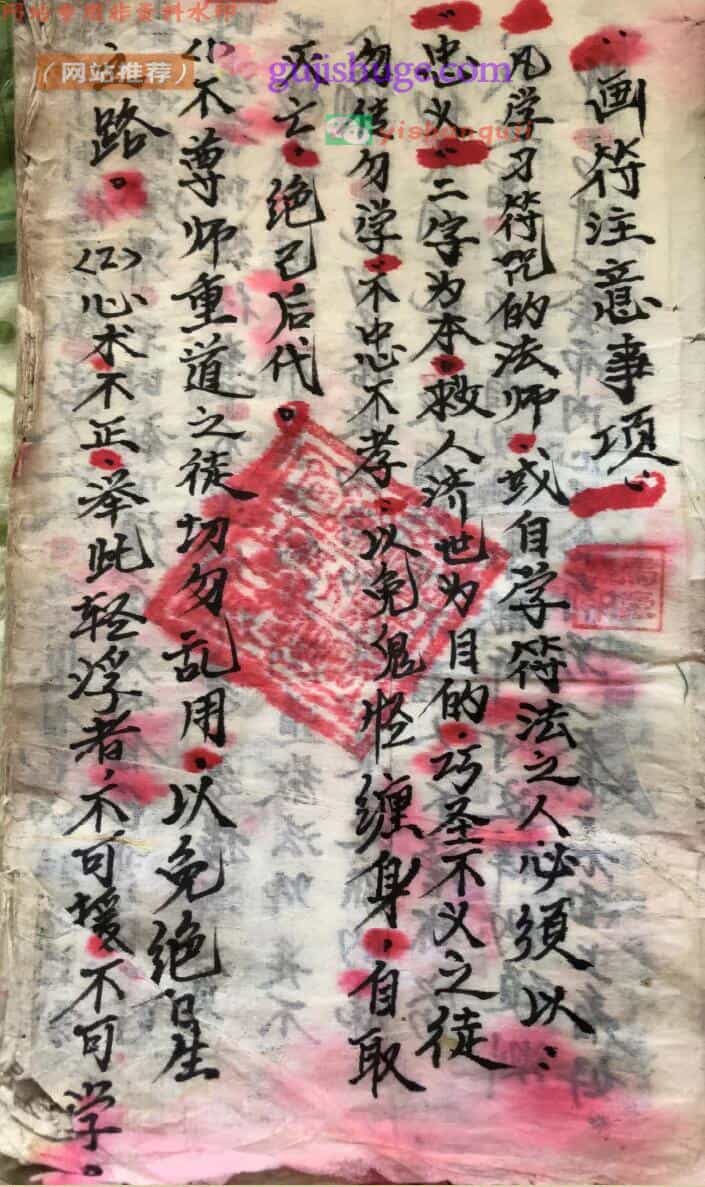 "画符注意事项"
凡学习符咒的法师.或自学符法之人必须以:
"忠义"二字为本.救人济世为目的.巧圣不义之徒
勿传勿学.不忠不孝.以免鬼怪缠身,自取
灭亡.绝己后代。
〈1〉不尊师重道之徒切勿乱用.以免绝自生
之路。〈2〉心术不正.举止轻浮者,不可授不可学。
(网站推荐)
gujishuge.com
yishuguji